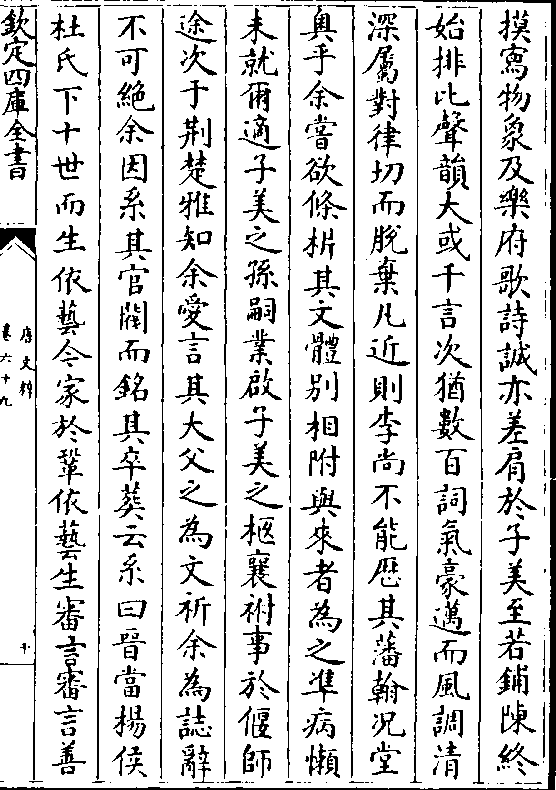 摸寫物象及樂府歌詩誠亦差肩於子美至若鋪陳終
始排比聲韻大或千言次猶數百詞氣豪邁而風調清
深屬對律切而脫棄凡近則李尚不能歴其藩翰况堂
奥乎余嘗欲條析其文體别相附與來者為之凖病懶
未就爾適子美之孫嗣業啟子美之柩襄祔事於偃師
途次于荆楚雅知余愛言其大父之為文祈余為誌辭
不可絶余因系其官閥而銘其卒葬云系曰晉當揚侯
杜氏下十世而生依藝令家於鞏依藝生審言審言善
欽定四庫全書
唐文粹
卷六十九
十